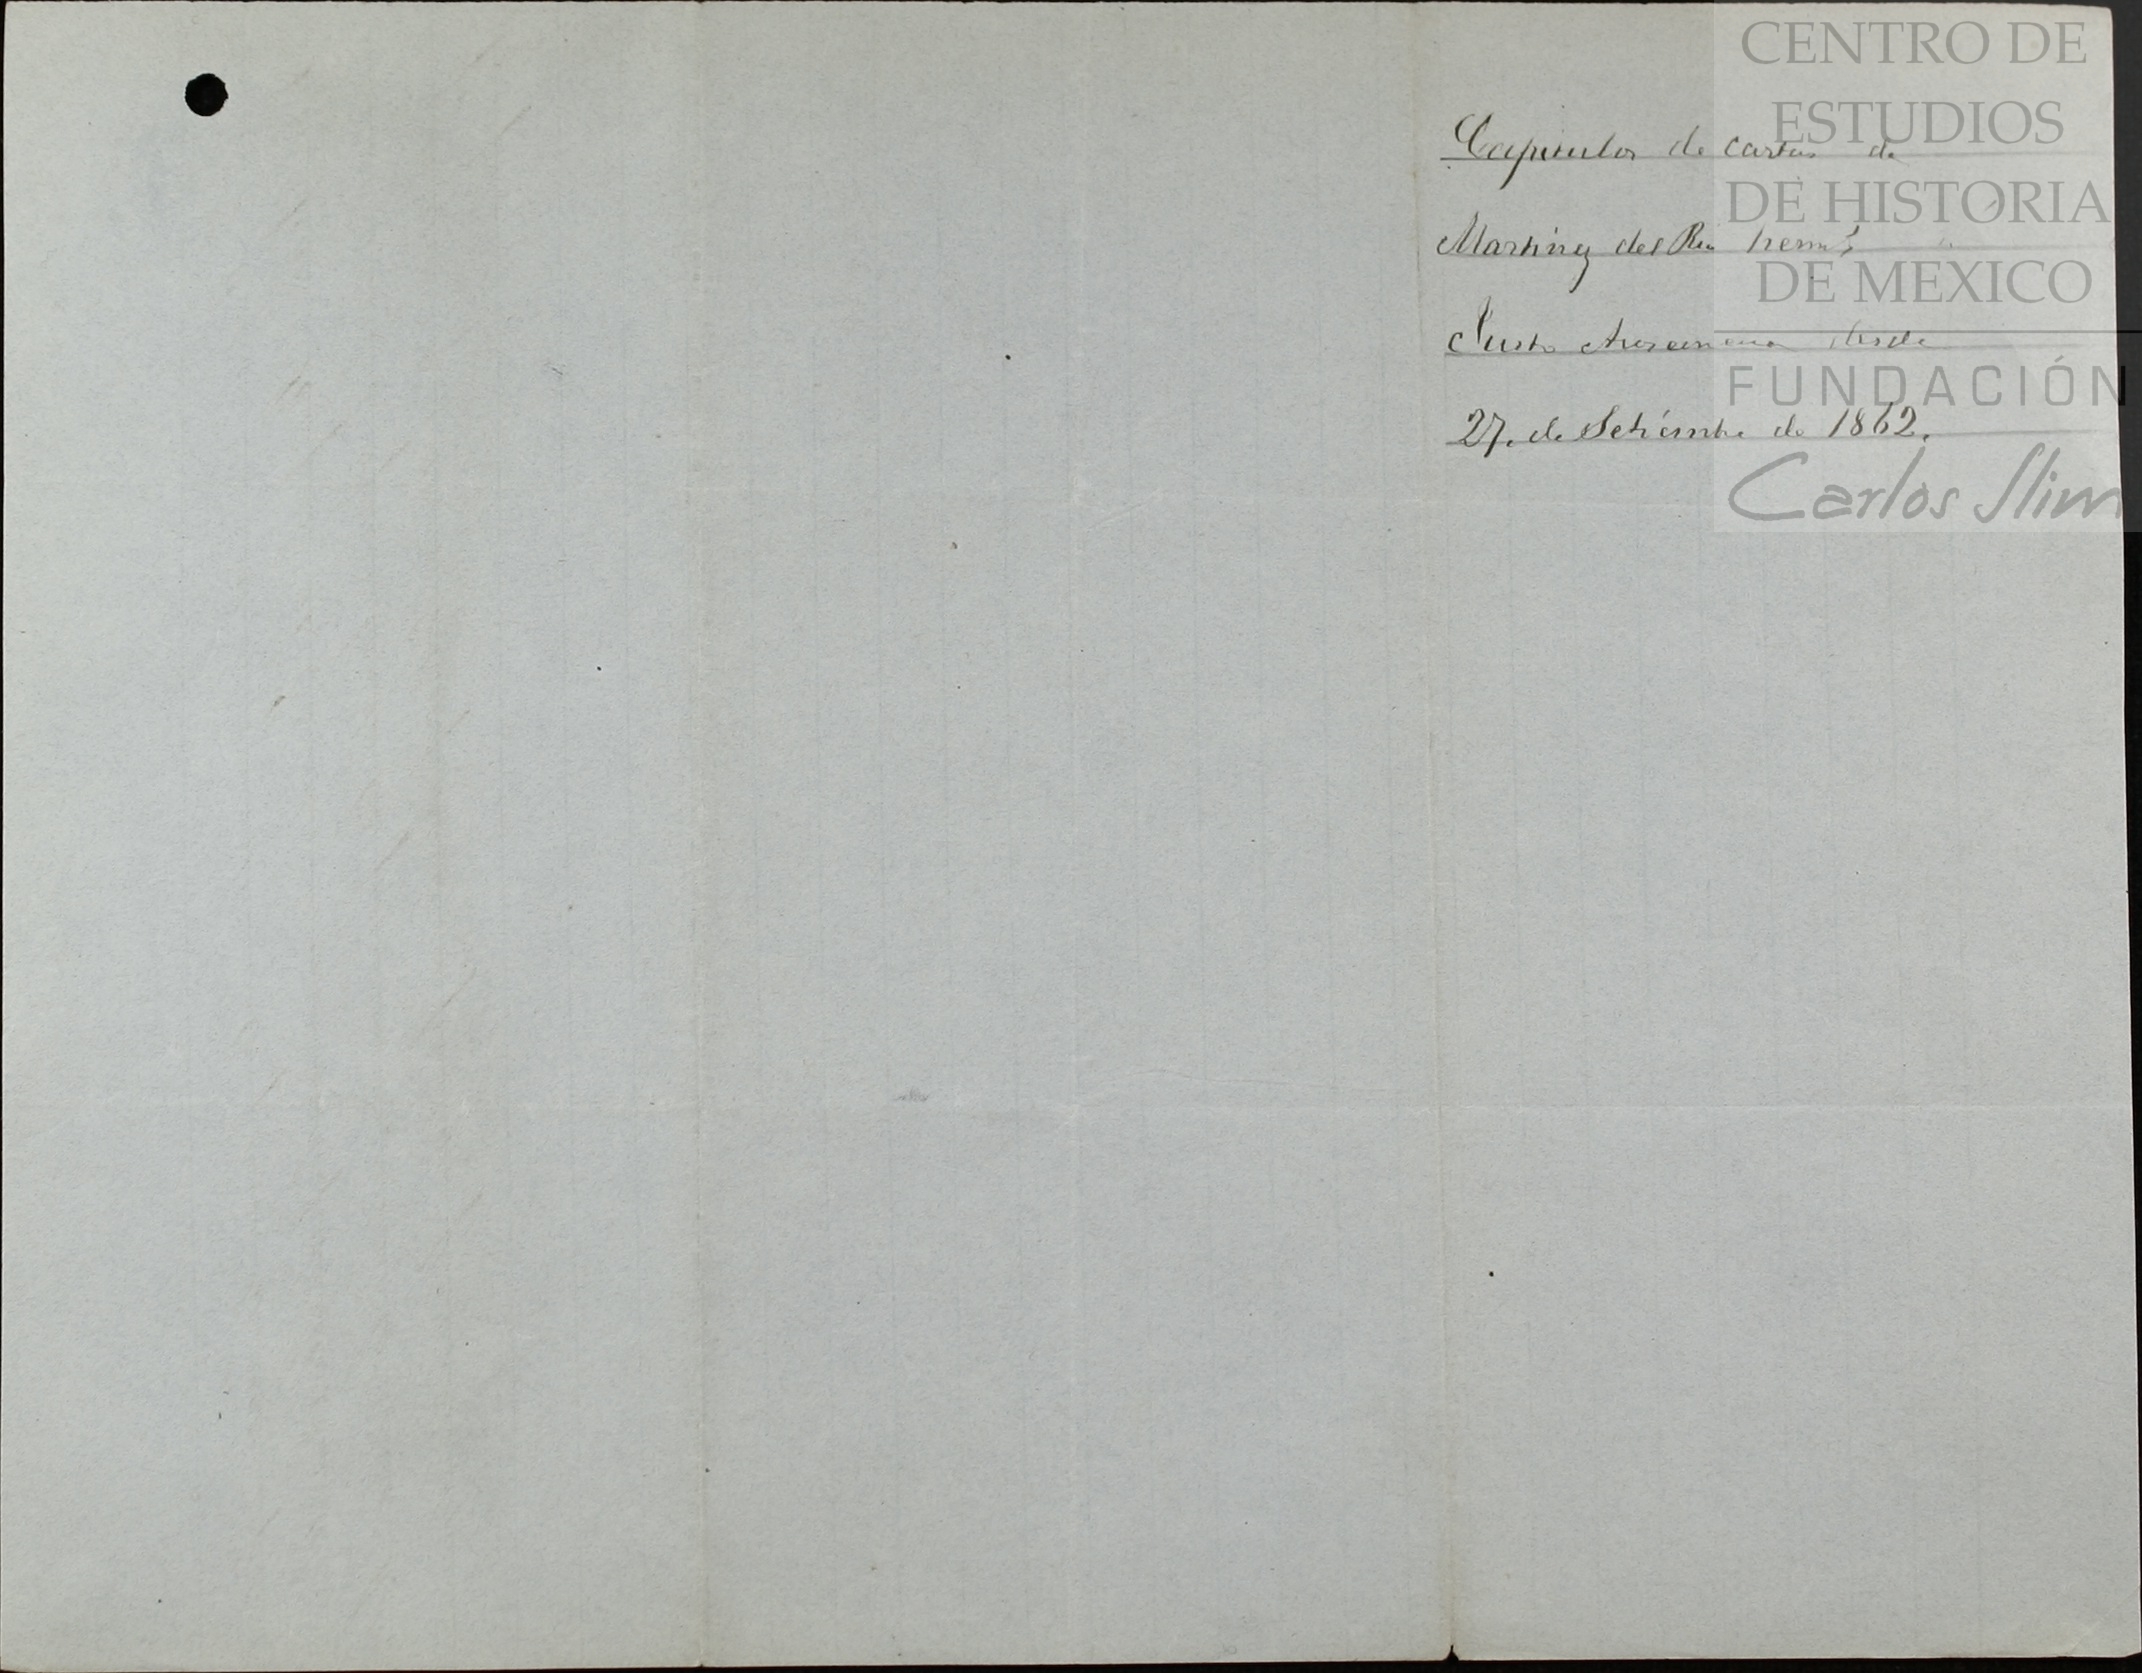 CENTRO DE
ESTUDIOS
DE HISTORIA
DE MEXICO
FUNDACIÓN
Carlos Slim
Capitulos de cartas de
Martinez del Rio herms
Justo Arosemena desde
27. de Setiembre de 1862.